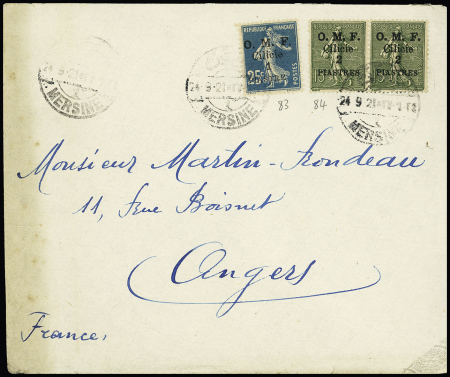 REPUBLIQUE FRANÇAISE
O. M. F.
Cilicie
25c
POSTES
O. M. F.
Cilicie
2
PIASTRES
O. M. F.
Cilicie
2
PIASTRES
24 9 21
MERSINE
24 9 21
MERSINE
24 9 21
MERSINE
83 84
Monsieur Martin-Frondeau
11, Rue Boisnet
Angers
France.